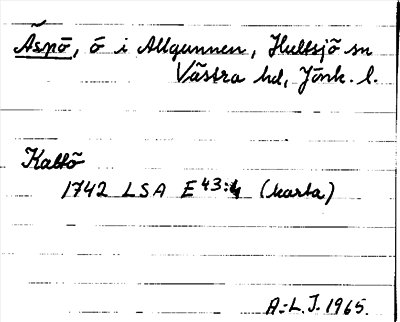 Äspö, ö i Allgunnen, Hultsjö sn
Västra hd, Jönk. l.
Kattö
1742 LSA E43:4 (karta)
A-L.J. 1965.